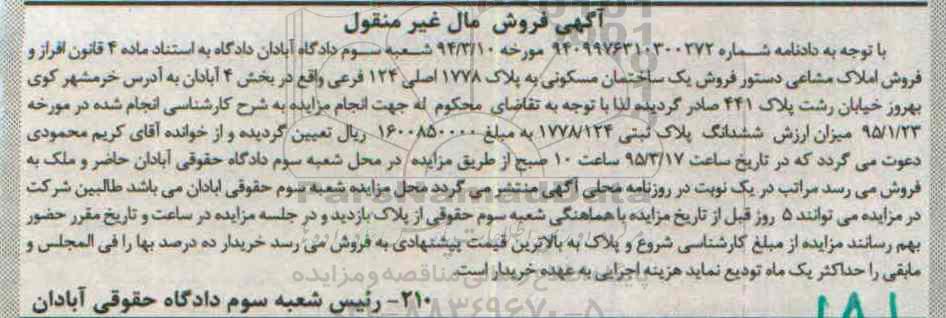 آگهی فروش مال غیر منقول
با توجه به دادنامه شماره ۹۴۰۹۹۷۶۳۱۰۳۰۰۲۷۲ مورخه ۹۴/۳/۱۰ شعبه سوم دادگاه آبادان دادگاه به استناد ماده ۴ قانون افراز و
فروش املاک مشاعی دستور فروش یک ساختمان مسکونی به پلاک ۱۷۷۸ اصلی ۱۲۴ فرعی واقع در بخش ۴ آبادان به آدرس خرمشهر کوی
بهروز خیابان رشت پلاک ۴۴۱ صادر گردیده لذا با توجه به تقاضای محکوم له جهت انجام مزایده به شرح کارشناسی انجام شده در مورخه
۹۵/۱/۲۳ میزان ارزش ششدانگ پلاک ثبتی ۱۷۷۸/۱۲۴ به مبلغ ۱۶۰۰۸۵۰۰۰۰ ریال تعیین گردیده و از خوانده آقای کریم محمودی
دعوت می گردد که در تاریخ ساعت ۹۵/۳/۱۷ ساعت ۱۰ صبح از طریق مزایده در محل شعبه سوم دادگاه حقوقی آبادان حاضر و ملک به
فروش می رسد مراتب در یک نوبت در روزنامه محلی آگهی منتشر می گردد محل مزایده شعبه سوم حقوقی ابادان می باشد طالبین شرکت
در مزایده می توانند ۵ روز قبل از تاریخ مزایده با هماهنگی شعبه سوم حقوقی از پلاک بازدید و در جلسه مزایده در ساعت و تاریخ مقرر حضور
بهم رسانند مزایده از مبلغ کارشناسی شروع و پلاک به بالاترین قیمت پیشنهادی به فروش می رسد خریدار ده درصد بها را فی المجلس و
مابقی را حداکثر یک ماه تودیع نماید هزینه اجرایی به عهده خریدار است.
۲۱۰- رئیس شعبه سوم دادگاه حقوقی آبادان
ParsNamadData